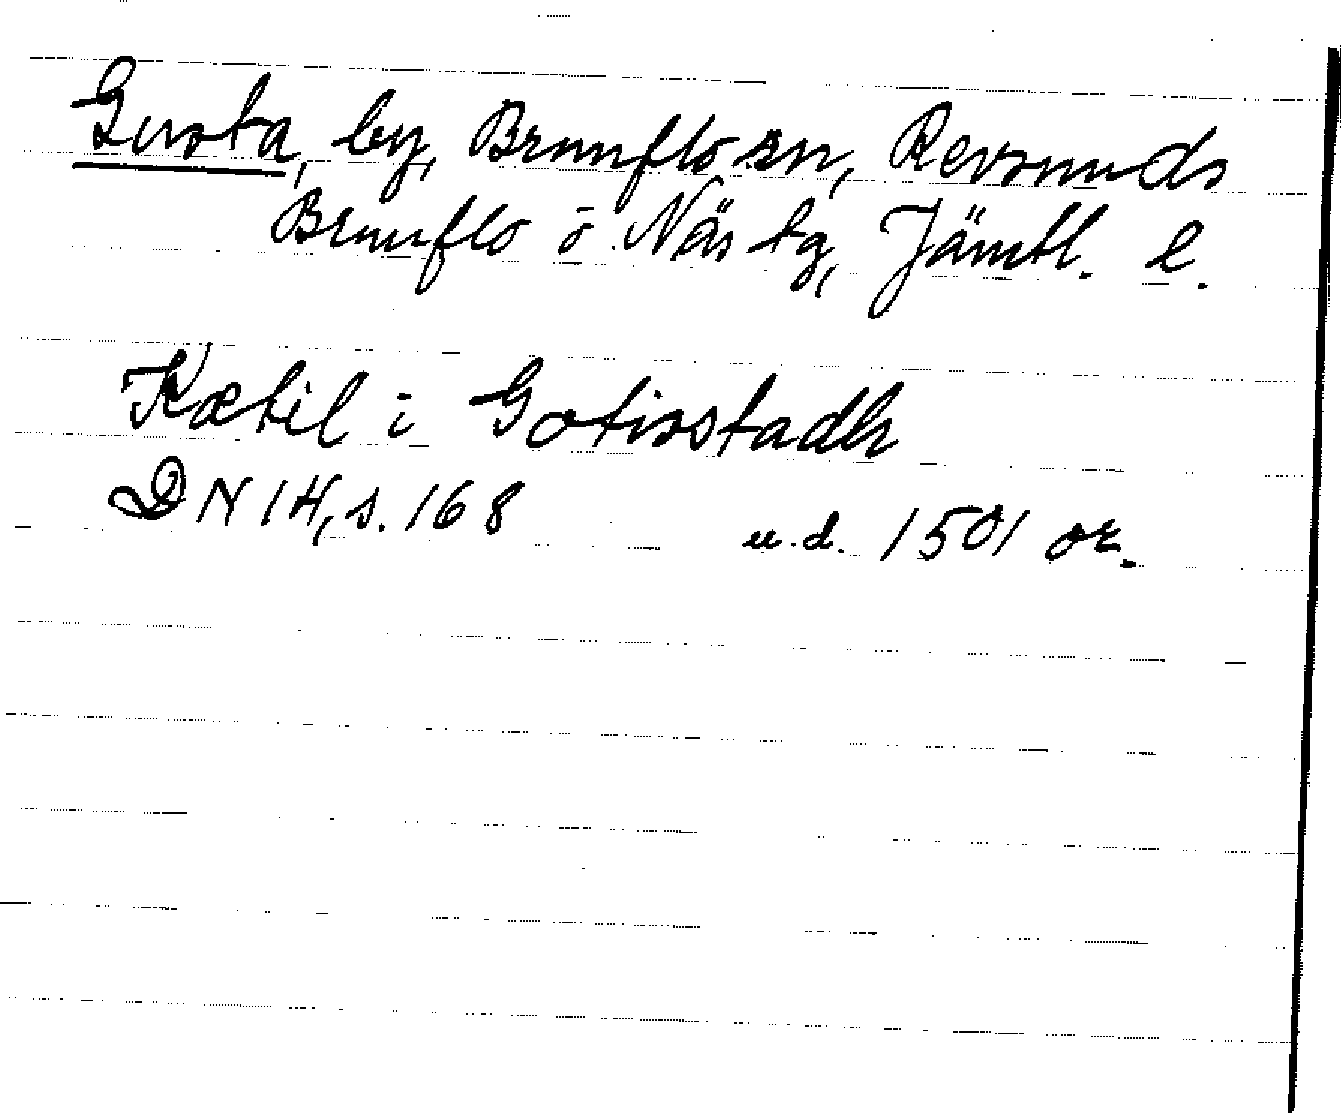 Gusta, by, Brunflo sn, Revsunds
Brunflo o. Näs tg, Jämtl. l.
Kætil i Gotisstadh
DN 14, s. 168 u.d. 1501 or.